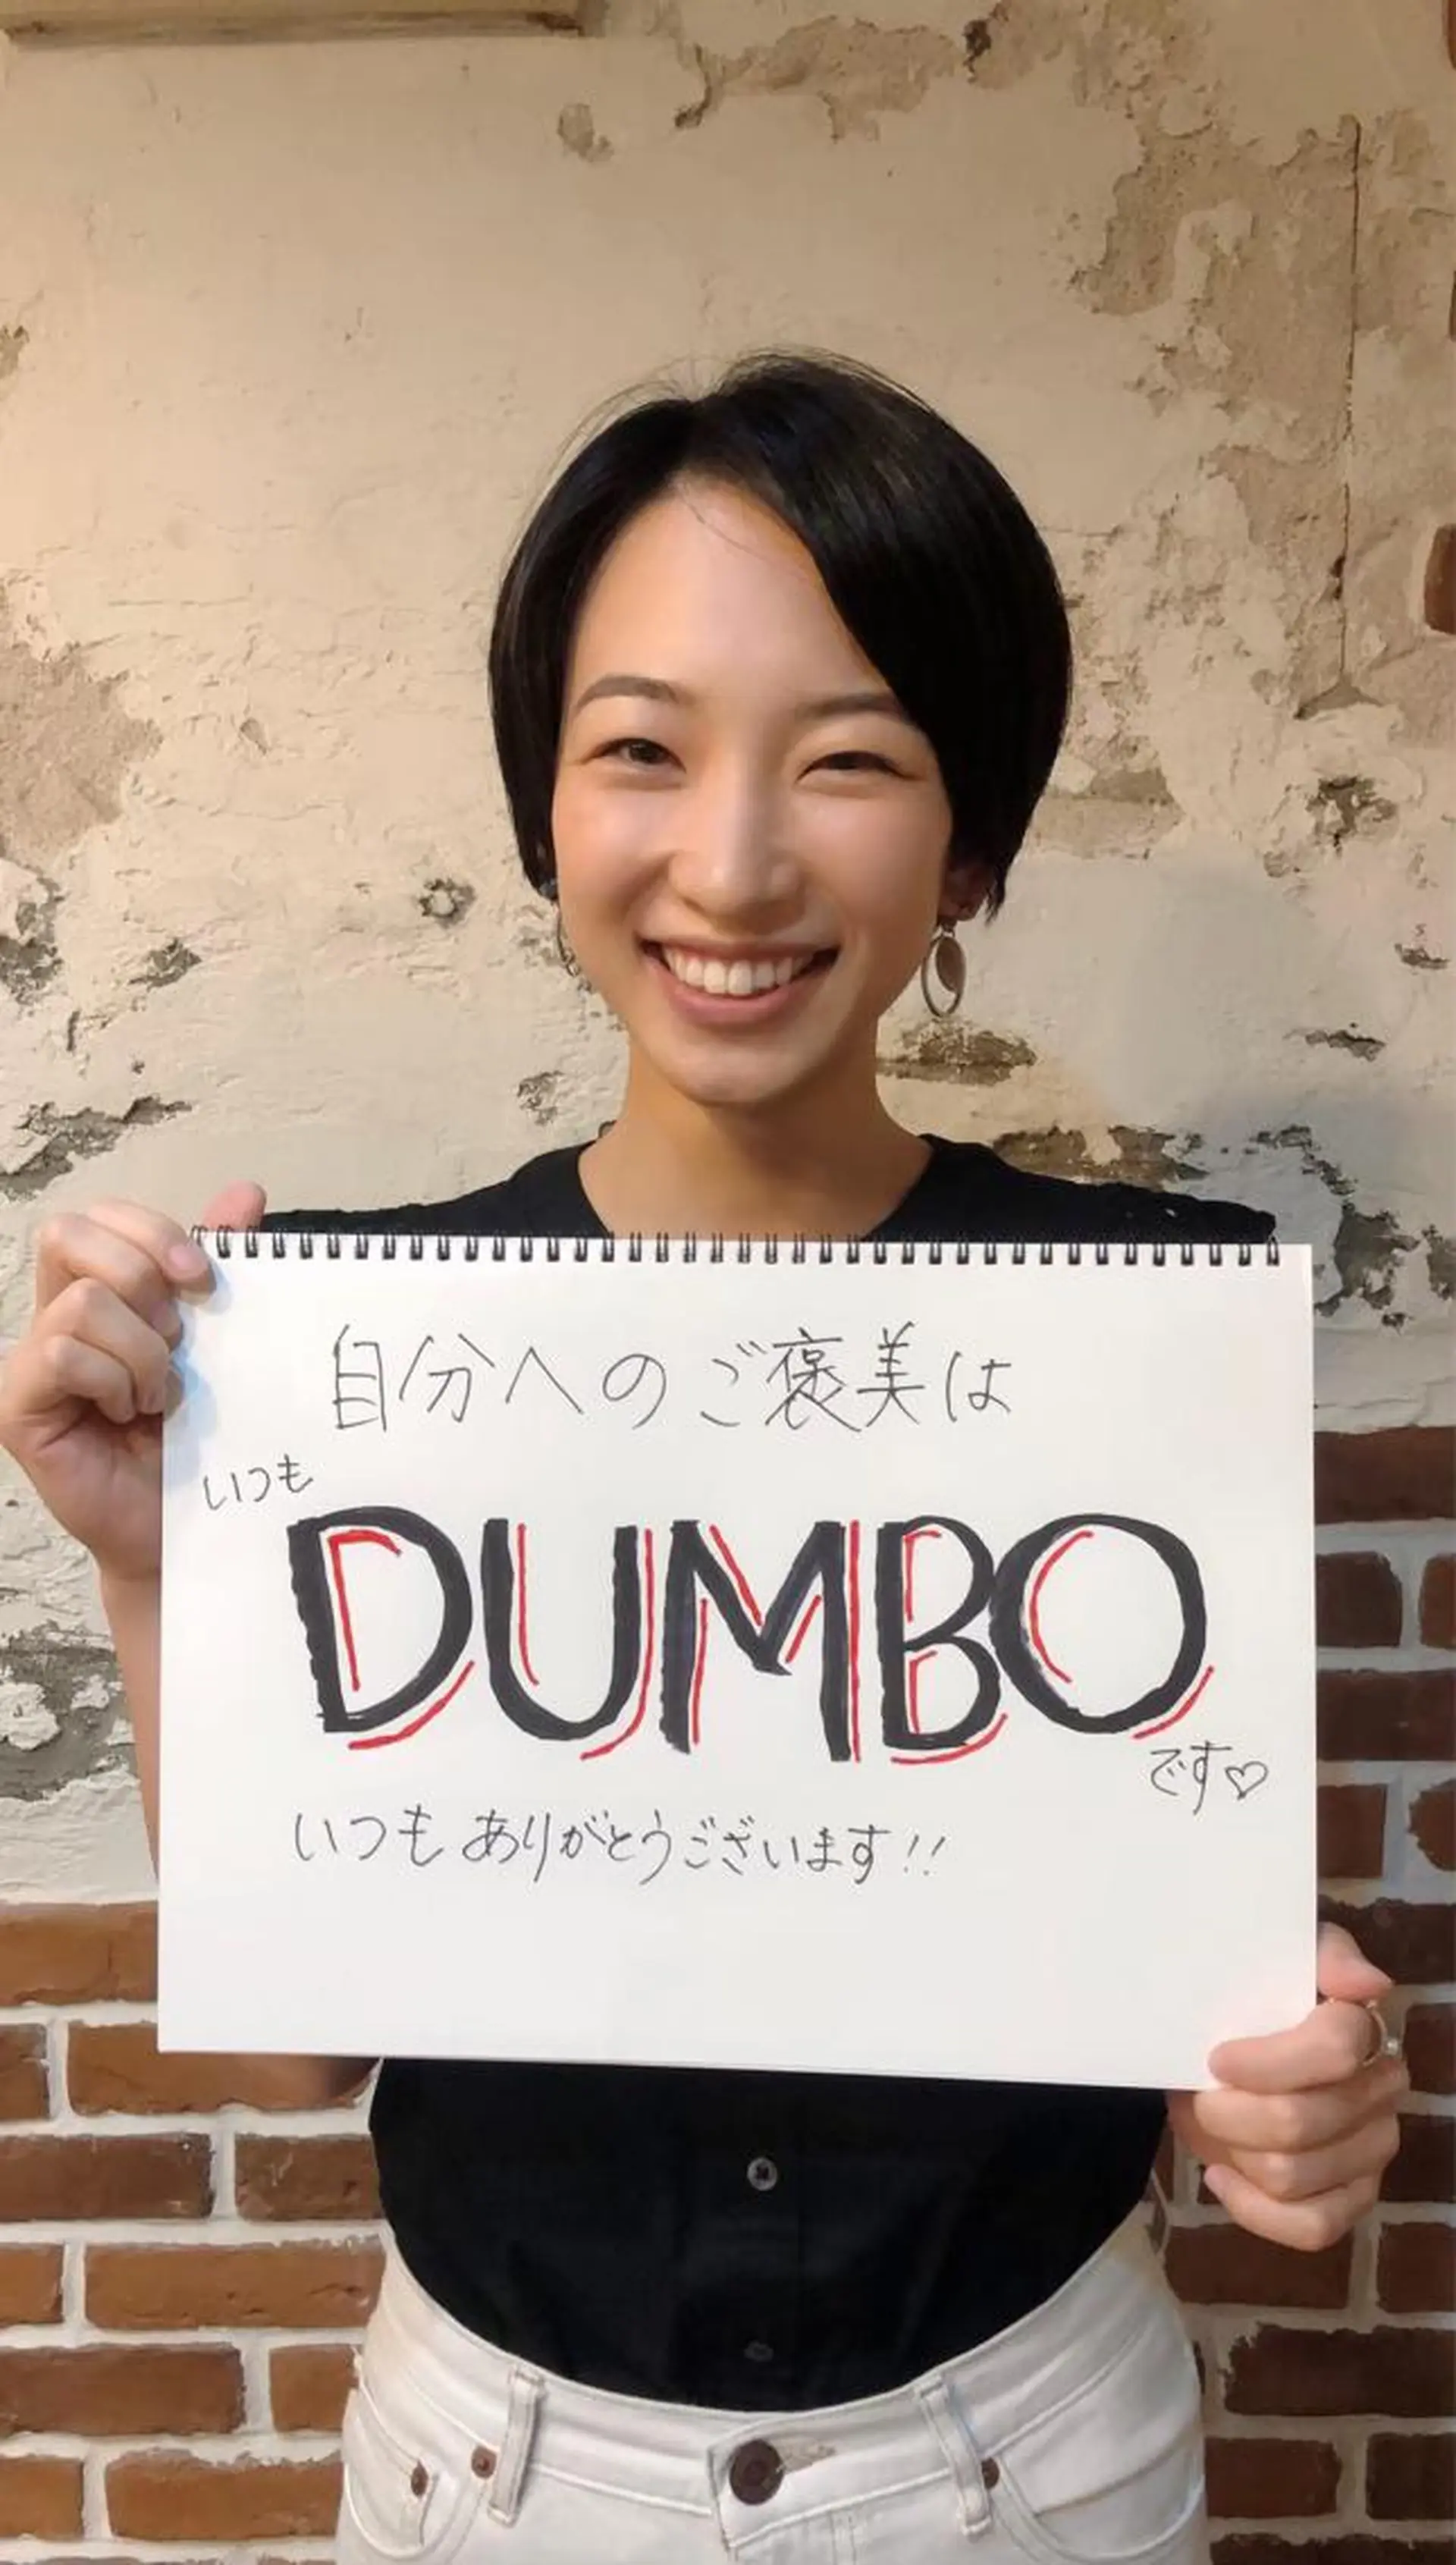 自分へのご褒美は
いつも
DUMBO
です♡
いつもありがとうございます!!